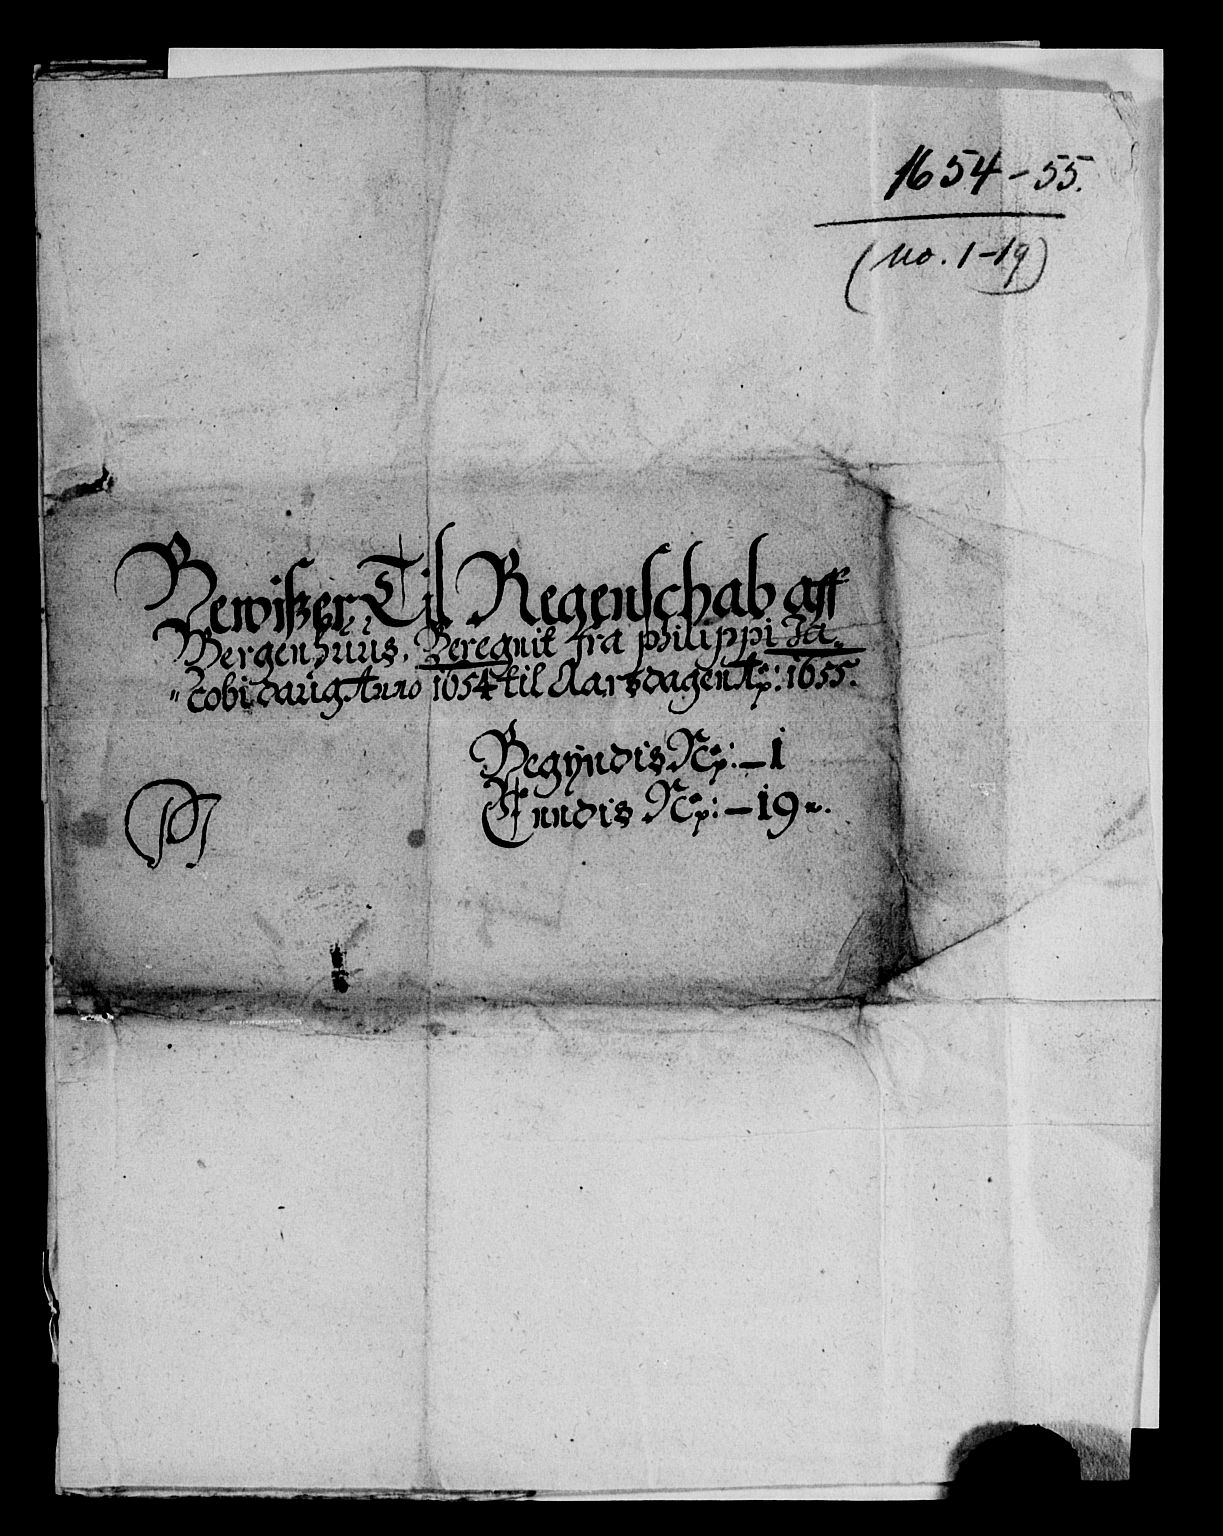 1654-55.
(No. 1-19)
Bewiszer Til Regenschab aff
Bergenhuus. Beregnit fra philippi Ja„
„cobi daug Anno 1654 til Aarsdagen A͠o: 1655.
Begÿndis No: – 1
Enndis No: – 19